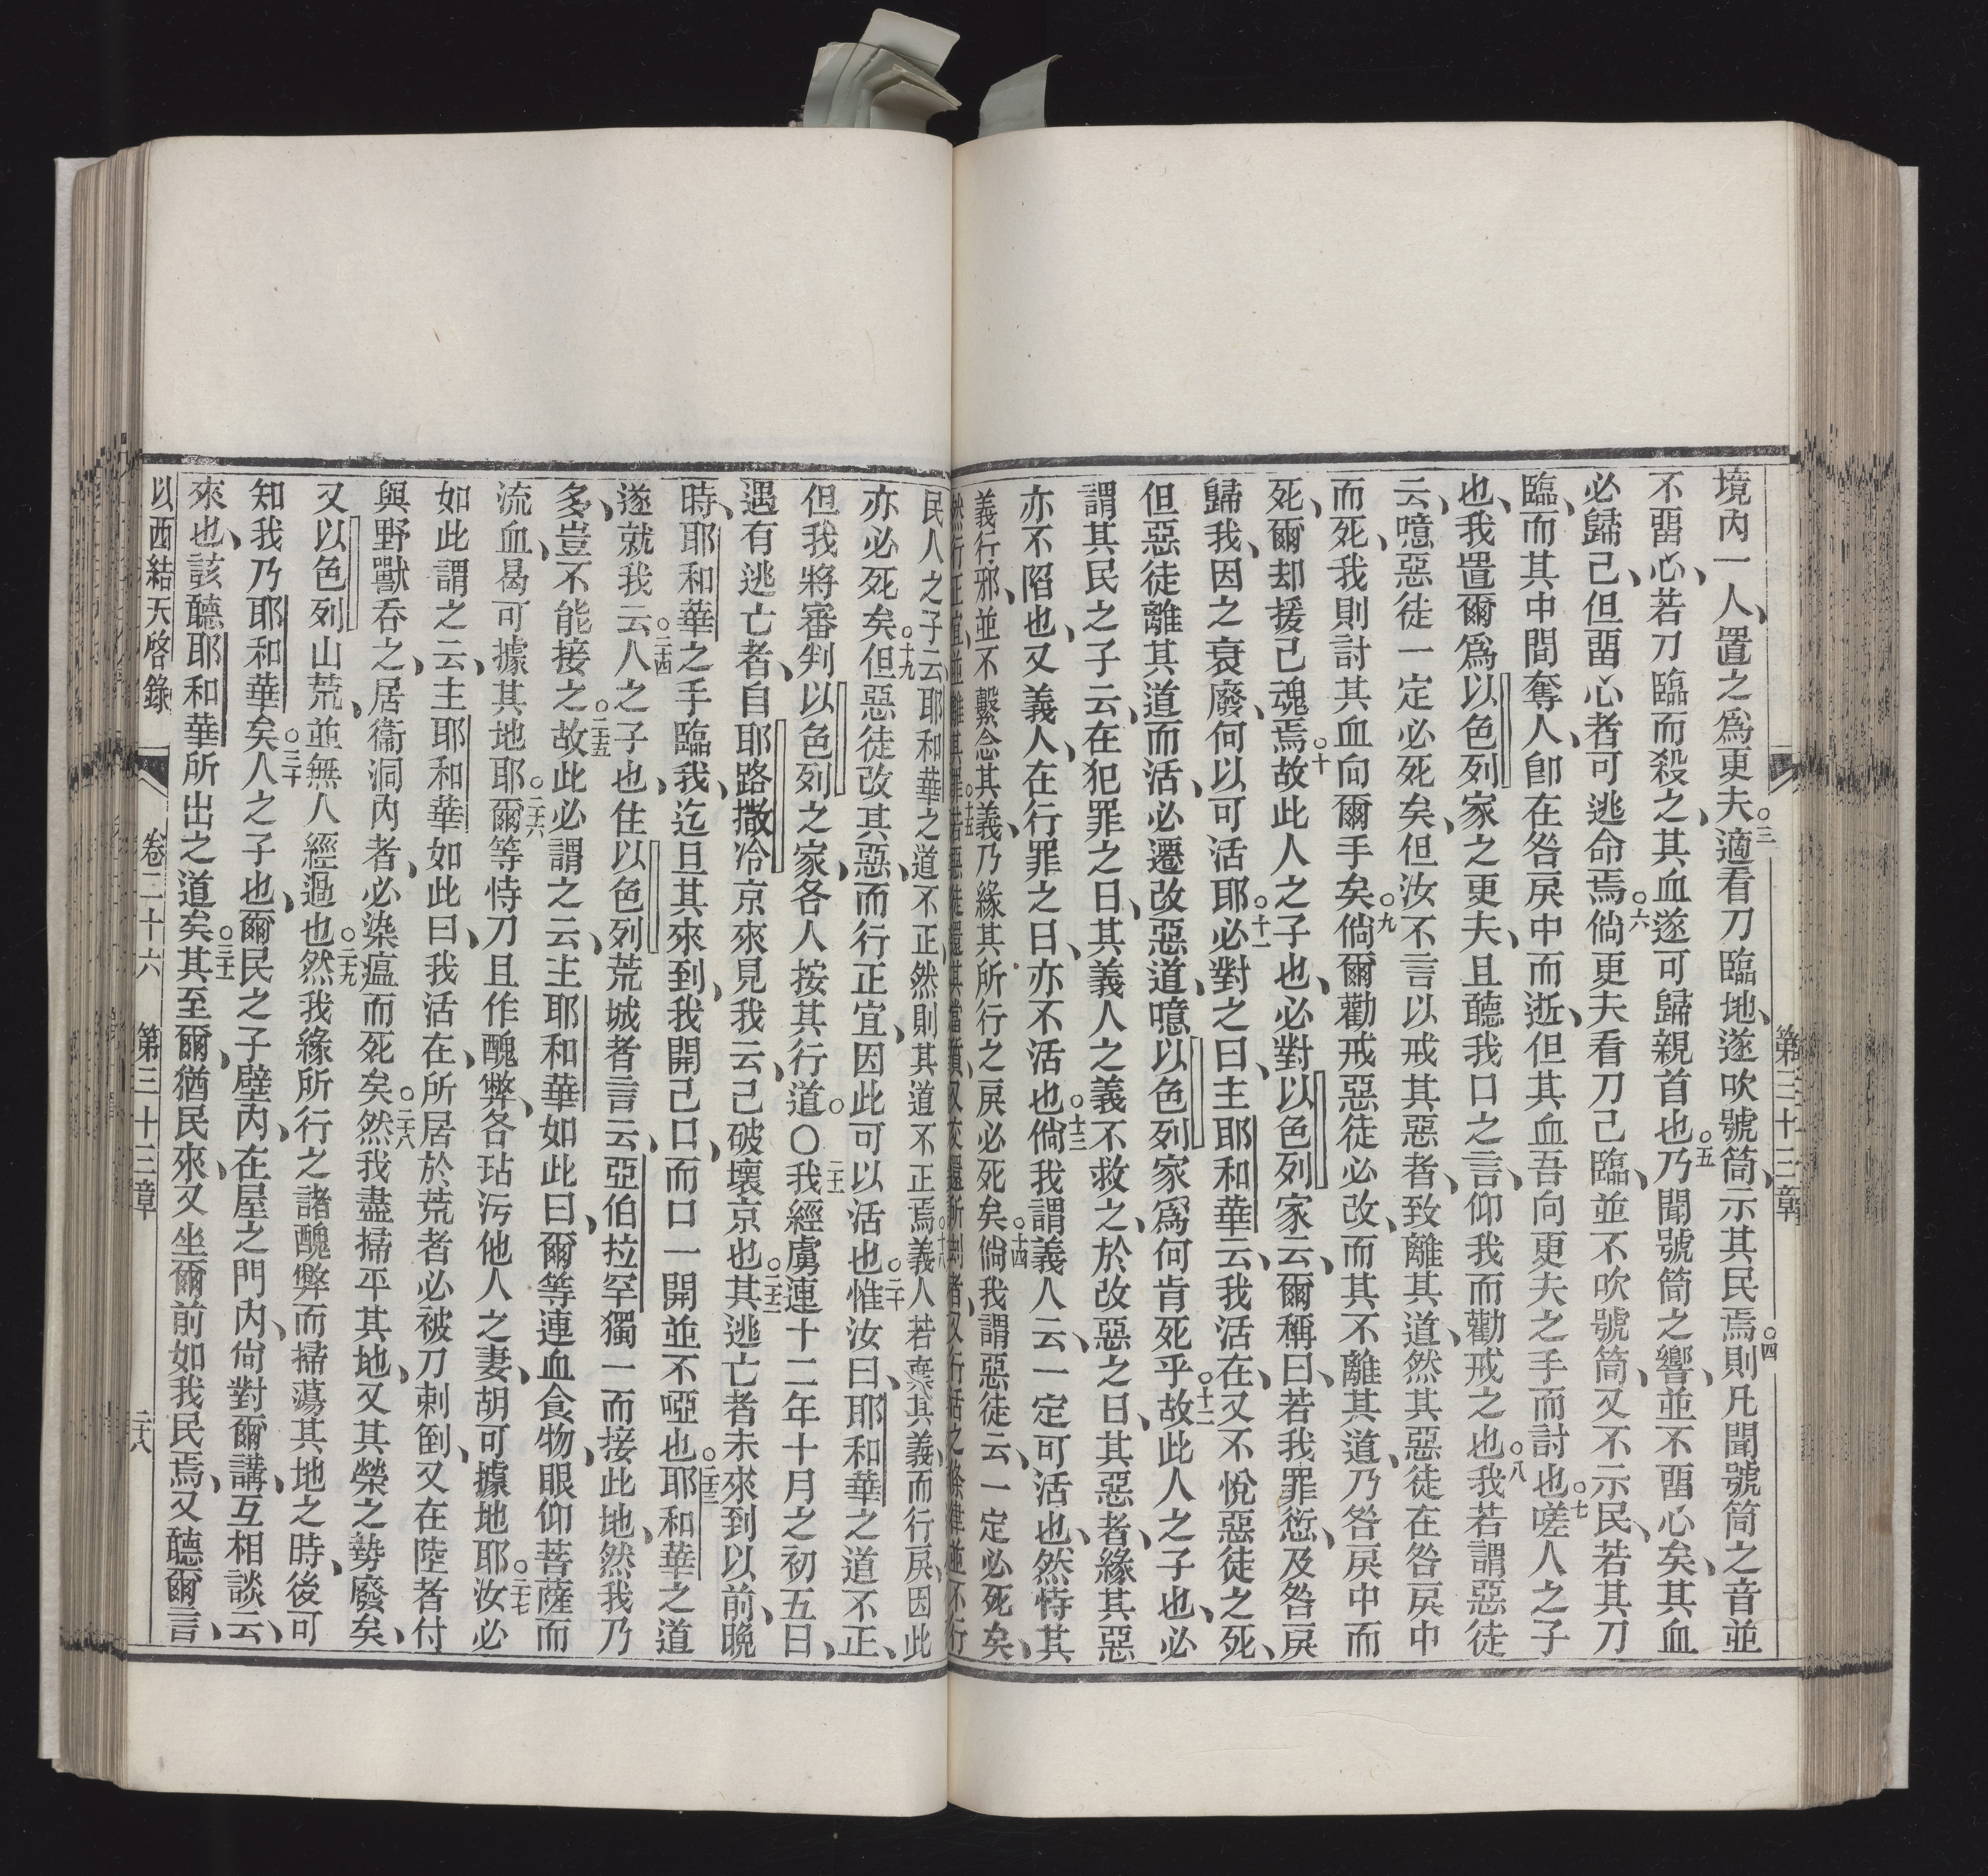 第三十三章
境內一人、置之爲更夫○三適看刀臨地、遂吹號筒、示其民焉○四則凡聞號筒之音並
不畱心、若刀臨而殺之、其血遂可歸親首也○五乃聞號筒之響、並不畱心矣、其血
必歸己、但畱心者可逃命焉○六倘更夫看刀己臨、並不吹號筒、又不示民、若其刀
臨、而其中間奪人、卽在咎戾中而逝、但其血吾向更夫之手而討也○七嗟人之子
也、我置爾爲以色列家之更夫、且聽我口之言、仰我而勸戒之也○八我若謂惡徒
云、噫惡徒一定必死矣、但汝不言以戒其惡者、致離其道、然其惡徒在咎戾中
而死、我則討其血向爾手矣○九倘爾勸戒惡徒必改、而其不離其道、乃咎戾中而
死、爾却援己魂焉○十故此人之子也、必對以色列家云、爾稱曰、若我罪愆、及咎戾
歸我、因之衰廢、何以可活耶○十一必對之曰、主耶和華云、我活在、又不悅惡徒之死、
但惡徒離其道而活、必遷改惡道、噫以色列家爲何肯死乎○十二故此人之子也、必
謂其民之子云、在犯罪之日、其義人之義不救之、於改惡之日、其惡者、緣其惡
亦不陷也、又義人、在行罪之日、亦不活也○十三倘我謂義人云、一定可活也、然恃其
義行邪、並不繫念其義、乃緣其所行之戾必死矣○十四倘我謂惡徒云、一定必死矣、
然行正宜、並離其罪○十五若惡徒還其當質、又交還所刦者、又行活之條律、並不行
民人之子云、耶和華之道不正、然則其道不正焉○十八義人若棄其義、而行戾、因此
亦必死矣○十九但惡徒改其惡、而行正宜、因此可以活也○二十惟汝曰、耶和華之道不正、
但我將審判以色列之家、各人按其行道○〇二十一我經虜連十二年十月之初五日、
遇有逃亡者、自耶路撒冷京來見我云、己破壞京也○二十二其逃亡者未來到以前、晩
時、耶和華之手臨我、迄旦其來到、我開己口、而口一開並不啞也○二十三耶和華之道
遂就我云○二十四人之子也、住以色列荒城者言云、亞伯拉罕獨一而接此地、然我乃
多、豈不能接之○二十五故此必謂之云、主耶和華如此曰、爾等連血食物、眼仰菩薩而
流血、曷可據其地耶○二十六爾等恃刀且作醜弊、各玷污他人之妻、胡可據地耶○二十七汝必
如此謂之云、主耶和華如此曰、我活在、所居於荒者必被刀剌倒、又在陸者付
與野獸吞之、居衞洞內者、必染瘟而死矣○二十八然我盡掃平其地、又其榮之勢廢矣、
又以色列山荒、並無人經過也○二十九然我緣所行之諸醜弊而掃蕩其地之時、後可
知我乃耶和華矣○三十人之子也、爾民之子壁內、在屋之門內、尙對爾講、互相談云、
來也、該聽耶和華所出之道矣○三十一其至爾、猶民來、又坐爾前如我民焉、又聽爾言、
以西結天啓錄　卷二十六　第三十三章　二十八